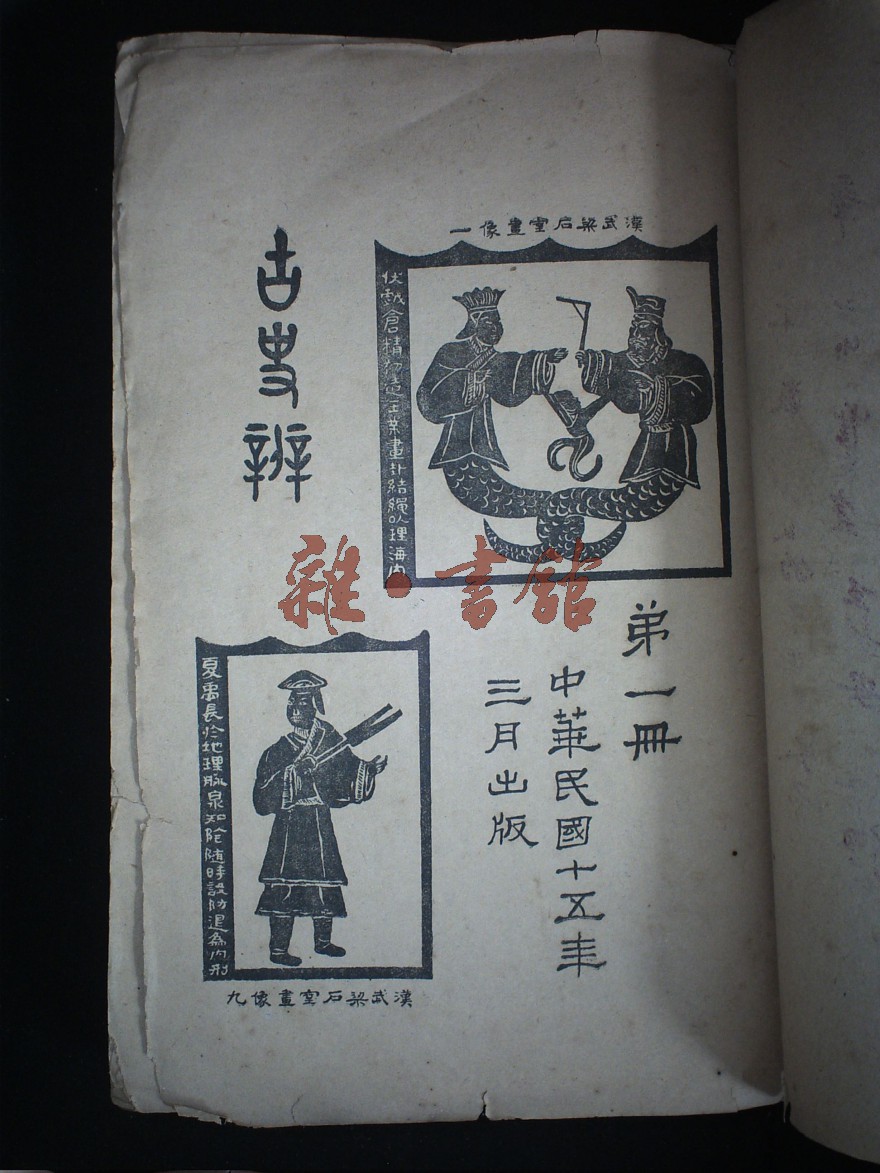 漢武梁石室畫像一
伏戲倉精初造王業畫卦結繩以理海內
古史辨
第一冊
中華民國十五年
三月出版
雜·書館
夏禹長於地理脉泉知陰隨時設防退為肉刑
漢武梁石室畫像九